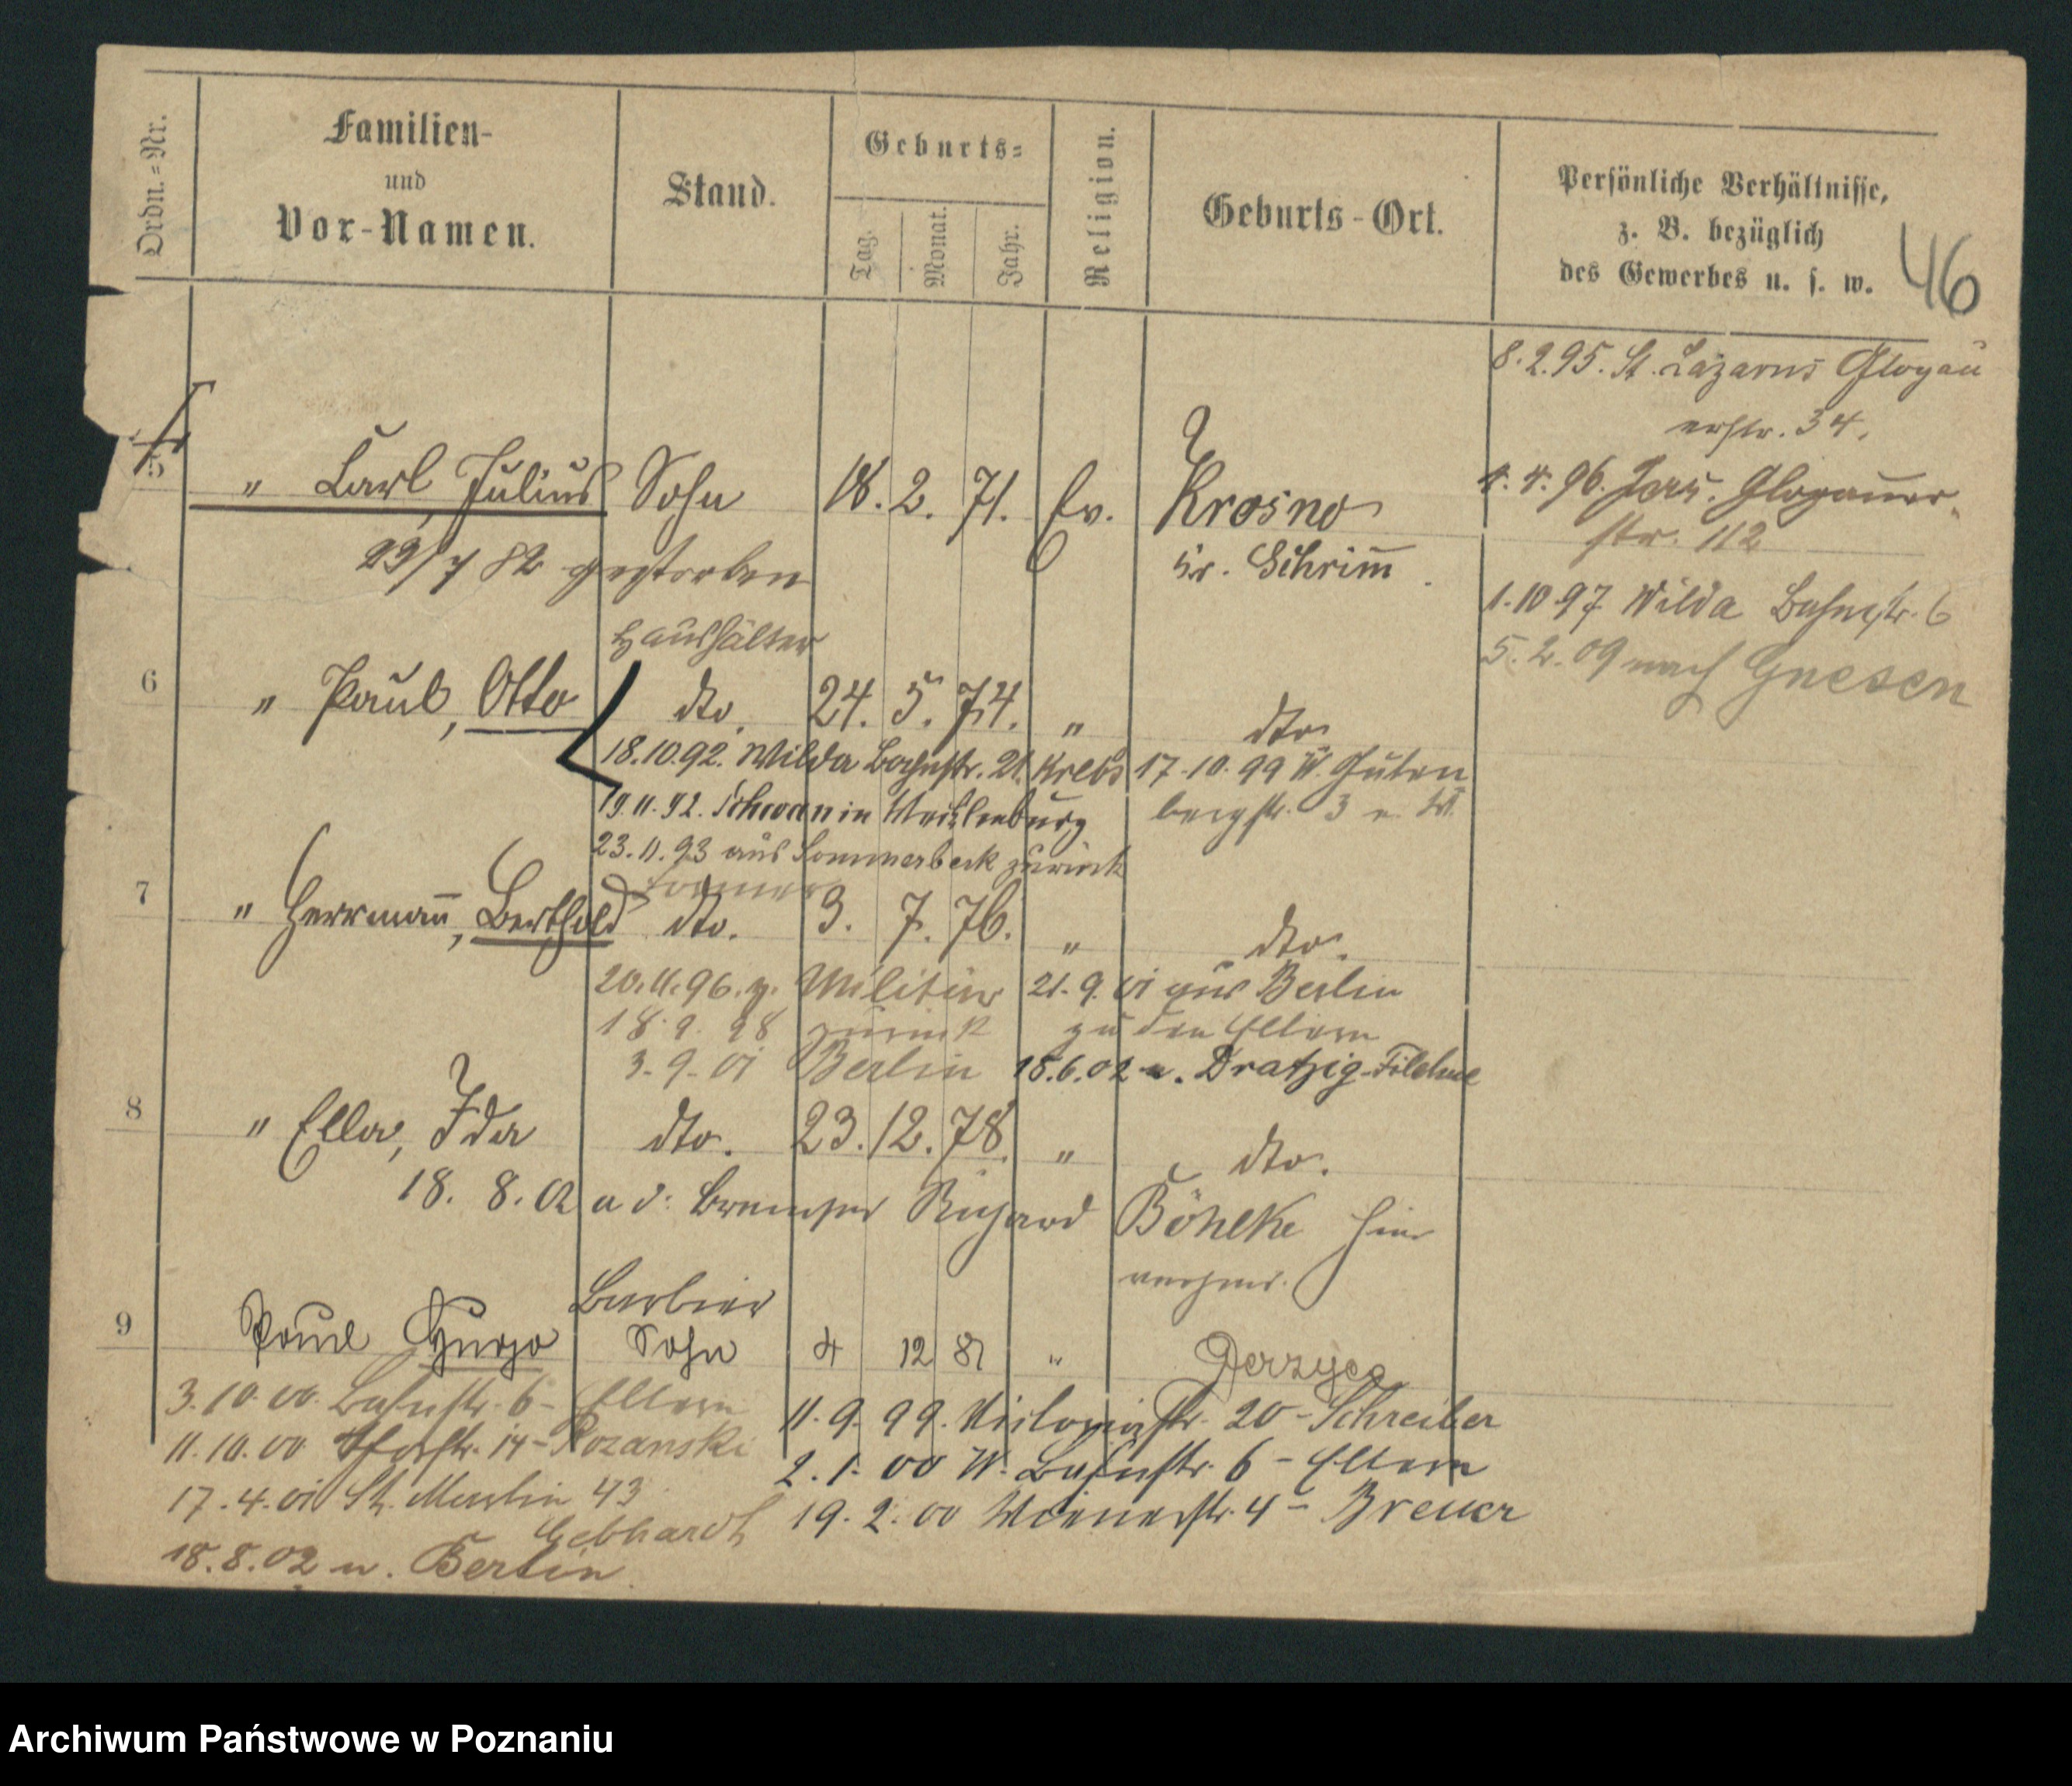 Ordn.=Nr.
Familien-
und
Vor-Namen.
Stand.
Geburts=
Tag.
Monat.
Jahr.
Religion.
Geburts-Ort.
Persönliche Verhältnisse,
z. B. bezüglich
des Gewerbes u. s. w.
46
8.2.95. St. Lazarus Glogau
erstr. 34.
5 " Carl, Julius Sohn 18. 2. 71. Ev. Krosno
1. 4. 96. Jers. Glogauer
str. 112
23/7 82 gestorben
Kr. Schrimm
1.10.97 Wilda Bahnstr. 6
Haushälter
5. 2. 09 nach Gnesen
6 " Paul, Otto dto. 24. 5. 74. " dto
18.10.92. Wilda Bahnstr. 21. Krebs
17.10.99 W. Guten
19.11.92. Schwan in Mecklenburg
bergstr. 3
23.11.93 aus Sommerbeck zurück
7 " Herrmann, Berthold dto. 3. 7. 76. " dto.
20.11.96. z. Militär
21. 9. 01 aus Berlin
18. 9. 98 zurück
zu den Eltern
3. 9. 01 Berlin
18.6.02 n. Dratzig-Filehne
8 " Ella, Ida dto. 23. 12. 78. " dto.
18. 8. 02 a d. Richard Böhlke hier
Barbier
9 Paul Hugo Sohn 4 12 81 " Jerzyce
3.10.00. Bahnstr. 6 - Eltern
11. 9. 99. Victoriastr. 20 - Schreiber
11.10.00 14 - Rozanski
2. 1. 00 W. Bahnstr. 6 - Eltern
17. 4. 01 St. Martin 43
Gebhardt
19. 2. 00 Wienerstr. 4 - Breuer
18.8.02 n. Berlin
Archiwum Państwowe w Poznaniu